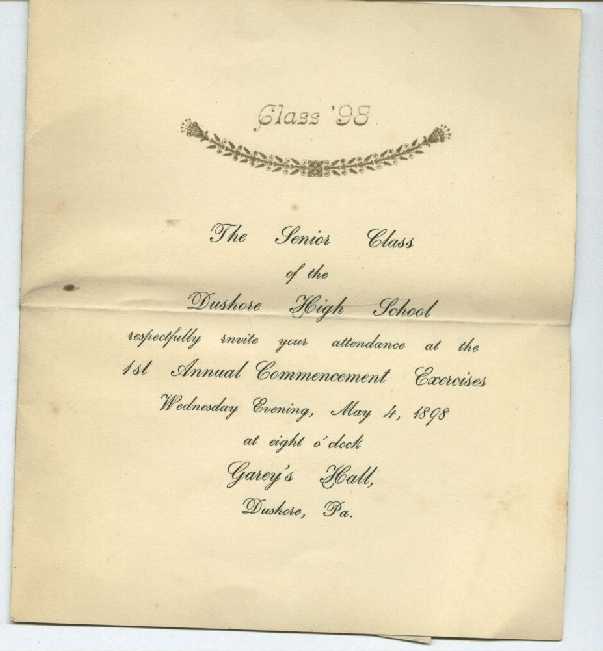 Class '98
The Senior Class
of the
Dushore High School
respectfully invite your attendance at the
1st Annual Commencement Exercises
Wednesday Evening, May 4, 1898
at eight o'clock
Garey's Hall,
Dushore, Pa.